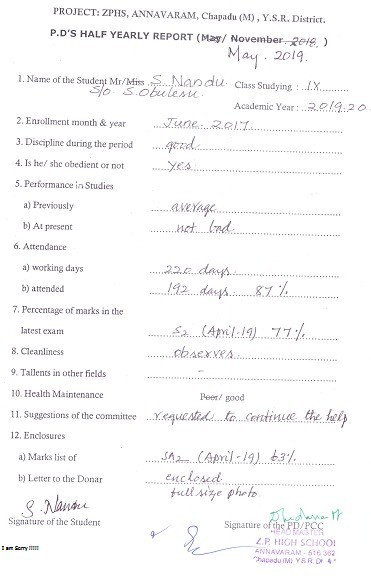 PROJECT: ZPHS, ANNAVARAM, Chapadu (M) , Y.S.R. District.
P.D'S HALF YEARLY REPORT (May/ November 2019, )
May. 2019.
1. Name of the Student Mr/Miss S. Nandu Class Studying : IX
S/o S. Obulesu. Academic Year : 2019.20
2. Enrollment month & year June. 2017
3. Discipline during the period good.
4. Is he/ she obedient or not yes.
5. Performance in Studies
a) Previously average
b) At present not bad
6. Attendance
a) working days 220 days.
b) attended 192 days. 87%.
7. Percentage of marks in the
latest exam S2 (April-19) 77%.
8. Cleanliness observes
9. Tallents in other fields -
10. Health Maintenance Poor/ good
11. Suggestions of the committee requested to continue the help
12. Enclosures
a) Marks list of SA2 (April-19) 63%.
b) Letter to the Donar enclosed
full size photo
S. Nandu
Signature of the Student Signature of the PD/PCC
HEAD MASTER
Z.P. HIGH SCHOOL
ANNAVARAM - 516 362
Chapadu (M) Y.S.R. Dt
I am Sorry !!!!!